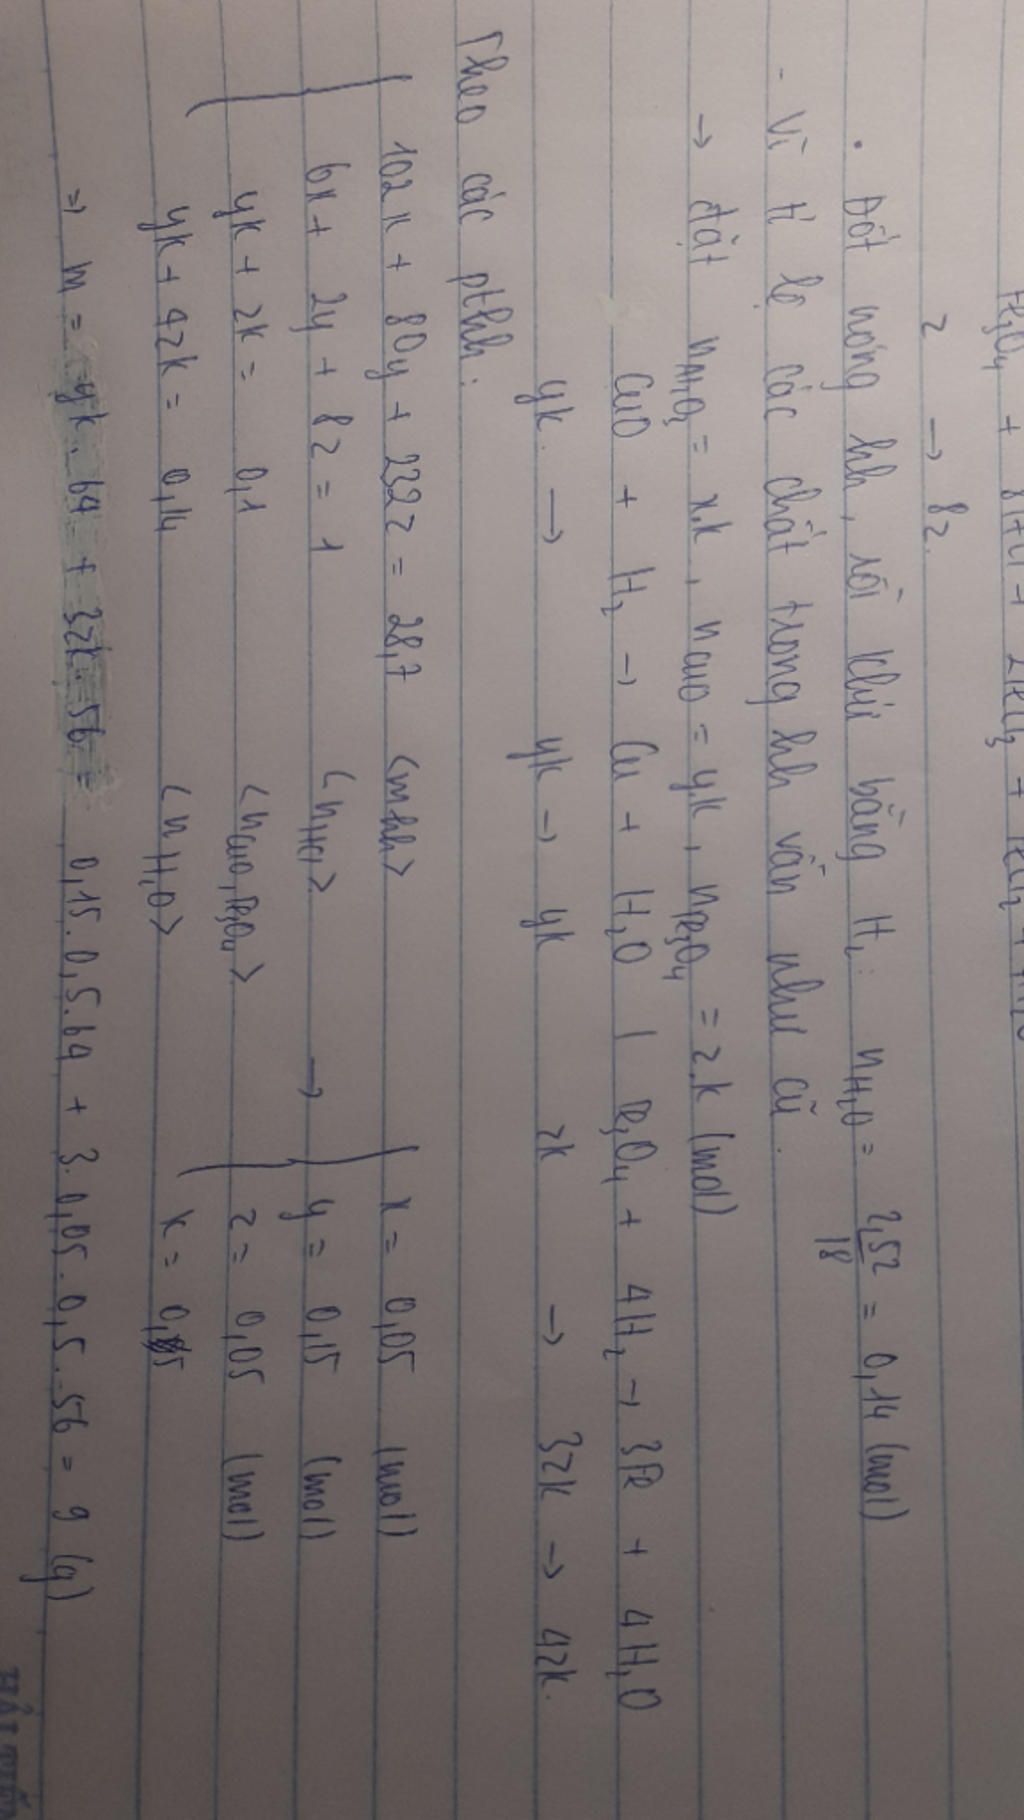 Fe₃O₄ + 8HCl → 2FeCl₃ + FeCl₂ + 4H₂O
z → 8z.
• Đốt nóng hh, rồi khử bằng H₂: nH₂O = 2,52/18 = 0,14 (mol)
- Vì tỉ lệ các chất trong hh vẫn như cũ.
→ đặt nAl₂O₃ = x.k, nCuO = y.k, nFe₃O₄ = z.k (mol)
CuO + H₂ → Cu + H₂O | Fe₃O₄ + 4H₂ → 3Fe + 4H₂O
yk. → yk → yk zk → 3zk → 4zk.
Theo các pthh:
102x + 80y + 232z = 28,7 <mhh> x = 0,05 (mol)
6x + 2y + 8z = 1 <nHCl> → y = 0,15 (mol)
yk + zk = 0,1 <nCuO, Fe₃O₄> z = 0,05 (mol)
yk + 4zk = 0,14 <nH₂O> k = 0,5
⇒ m = yk.64 + 3zk.56 = 0,15.0,5.64 + 3.0,05.0,5.56 = 9 (g)